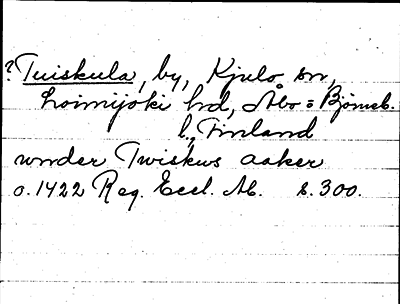 ? Tuiskula, by, Kjulo sn,
Loimijoki hd, Åbo = Björneb.
l., Finland
under Twiskus aaker
o. 1422 Reg. Eccl. Ab. s. 300.